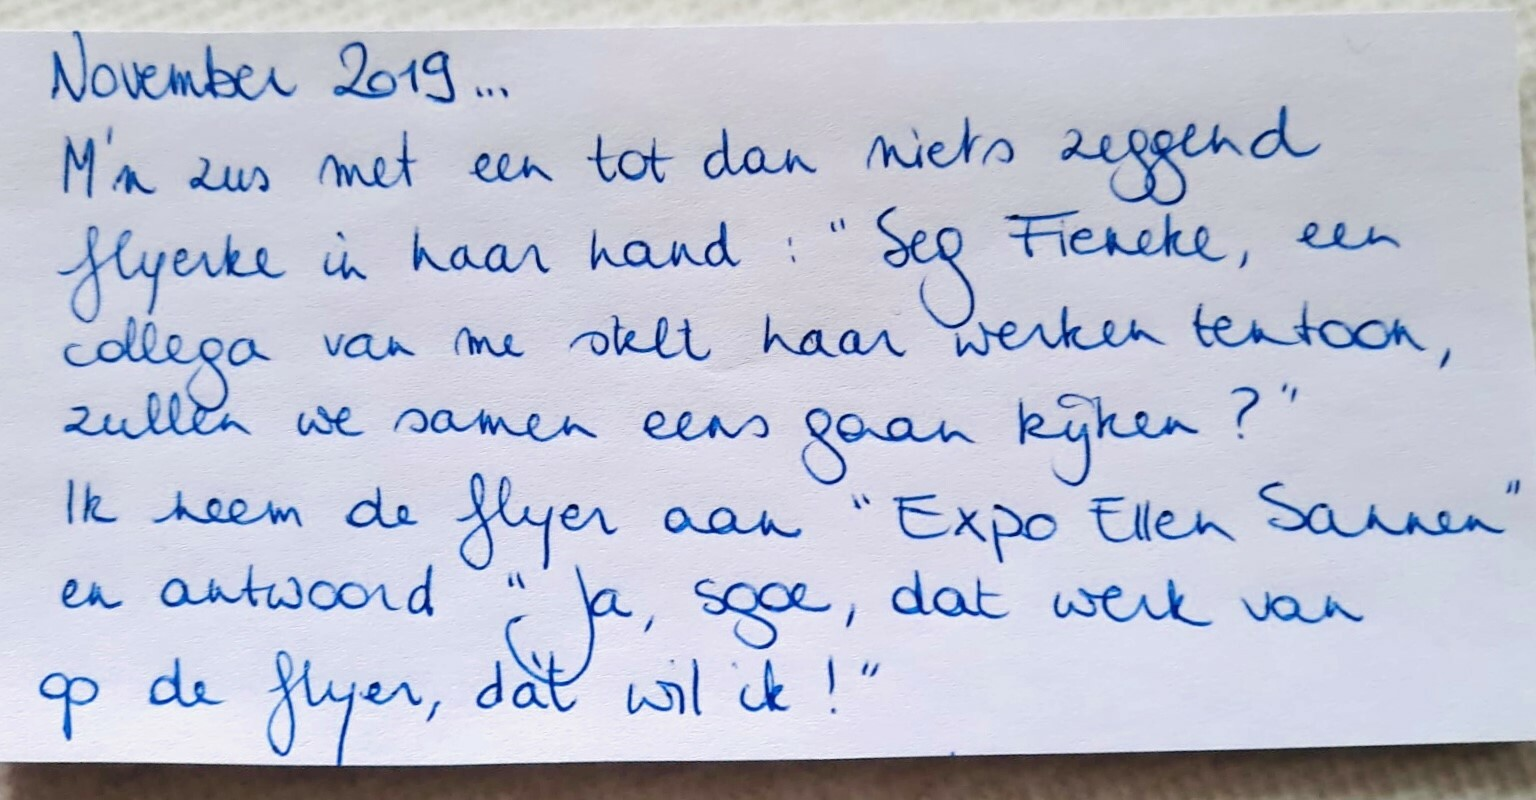 November 2019...
M'n zus met een tot dan niets zeggend
flyerke in haar hand : "Seg Fieneke, een
collega van me stelt haar werken tentoon,
zullen we samen eens gaan kijken ?"
Ik neem de flyer aan "Expo Ellen Sannen"
en antwoord "Ja, sgoe, dat werk van
op de flyer, dàt wil ik !"